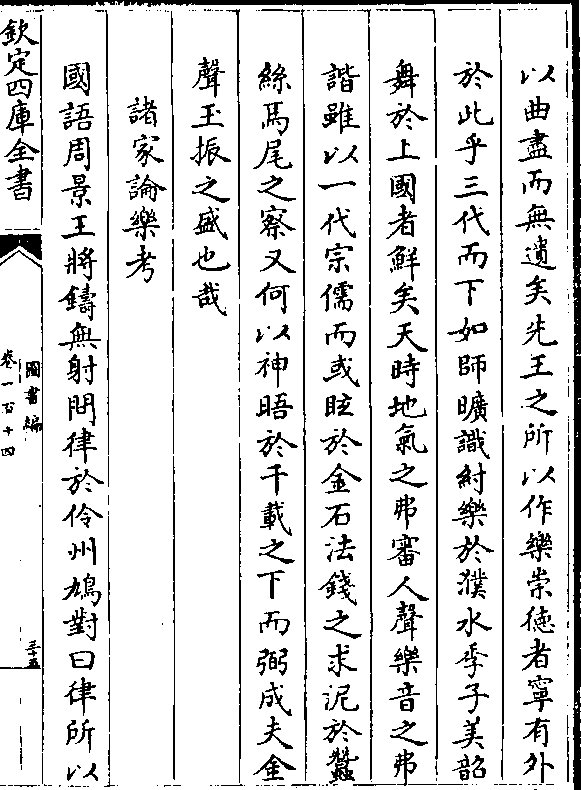 以曲盡而無遺矣先王之所以作樂崇德者寧有外
於此乎三代而下如師曠識紂樂於濮水季子美韶
舞於上國者鮮矣天時地氣之弗審人聲樂音之弗
諧雖以一代宗儒而或眩於金石法錢之求泥於蠶
絲馬尾之察又何以神晤於千載之下而弼成夫金
聲玉振之盛也哉
諸家論樂考
國語周景王將鑄無射問律於伶州鳩對曰律所以
欽定四庫全書
圖書編
卷一百十四
三十五